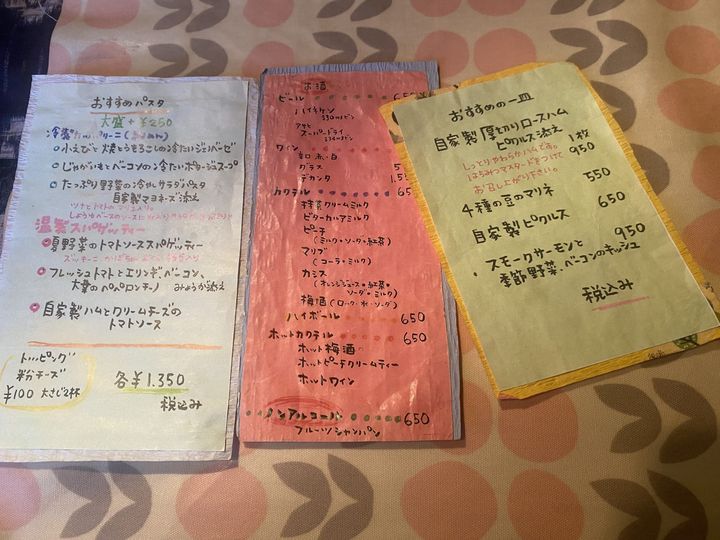 おすすめパスタ
大盛+¥250
○小えびと焼とうもろこしの冷たいジェノベーゼ
○じゃがいもとベーコンの冷たいポタージュスープ
○たっぷり野菜の冷やしサラダパスタ
自家製マヨネーズ添え
温製スパゲッティー
夏野菜のトマトソーススパゲッティー
フレッシュトマトとエリンギ、ベーコン、
大葉のペペロンチーノ みょうが添え
自家製ハムとクリームチーズの
トマトソース
トッピング
粉チーズ
¥100 大さじ2杯
各¥1.350
税込み
お酒
ビール
ハイネケン
330mlビン
アサヒ
スーパードライ
334mlビン
ワイン
赤・白
グラス
デカンタ
カクテル
抹茶クリームミルク
ビターカルアミルク
ピーチ
(ミルク・ソーダ・紅茶)
マリブ
(コーラ・ミルク)
カシス
(オレンジジュース・紅茶
ソーダ・ミルク)
梅酒(ロック・水・ソーダ)
ハイボール 650
ホットカクテル 650
ホット梅酒
ホットピーチクリームティー
ホットワイン
ノンアルコール 650
フルーツシャンパン
おすすめの一皿
自家製厚切りロースハム
ピクルス添え
1枚
950
しっとりやわらかハムです。
はちみつマスタードをつけて
お召し上がり下さい。
4種の豆のマリネ 550
自家製ピクルス 650
スモークサーモンと 950
季節野菜、ベーコンのキッシュ
税込み